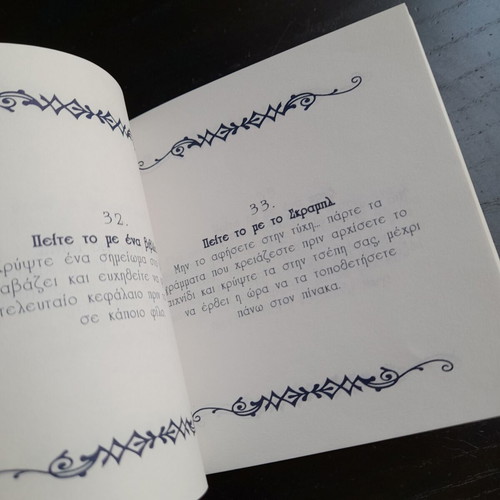 32.
Πείτε το με ένα
κρύψτε ένα σημείωμα
αβάζει και ευχηθείτε να
τελευταίο κεφάλαιο
σε κάποιο
33.
Πείτε το με το Σκραμπλ
Μην το αφήσετε στην τύχη... πάρτε τα
γράμματα που χρειάζεστε πριν αρχίσετε το
παιχνίδι και κρύψτε τα στην τσέπη σας, μέχρι
να έρθει η ώρα να τα τοποθετήσετε
πάνω στον πίνακα.